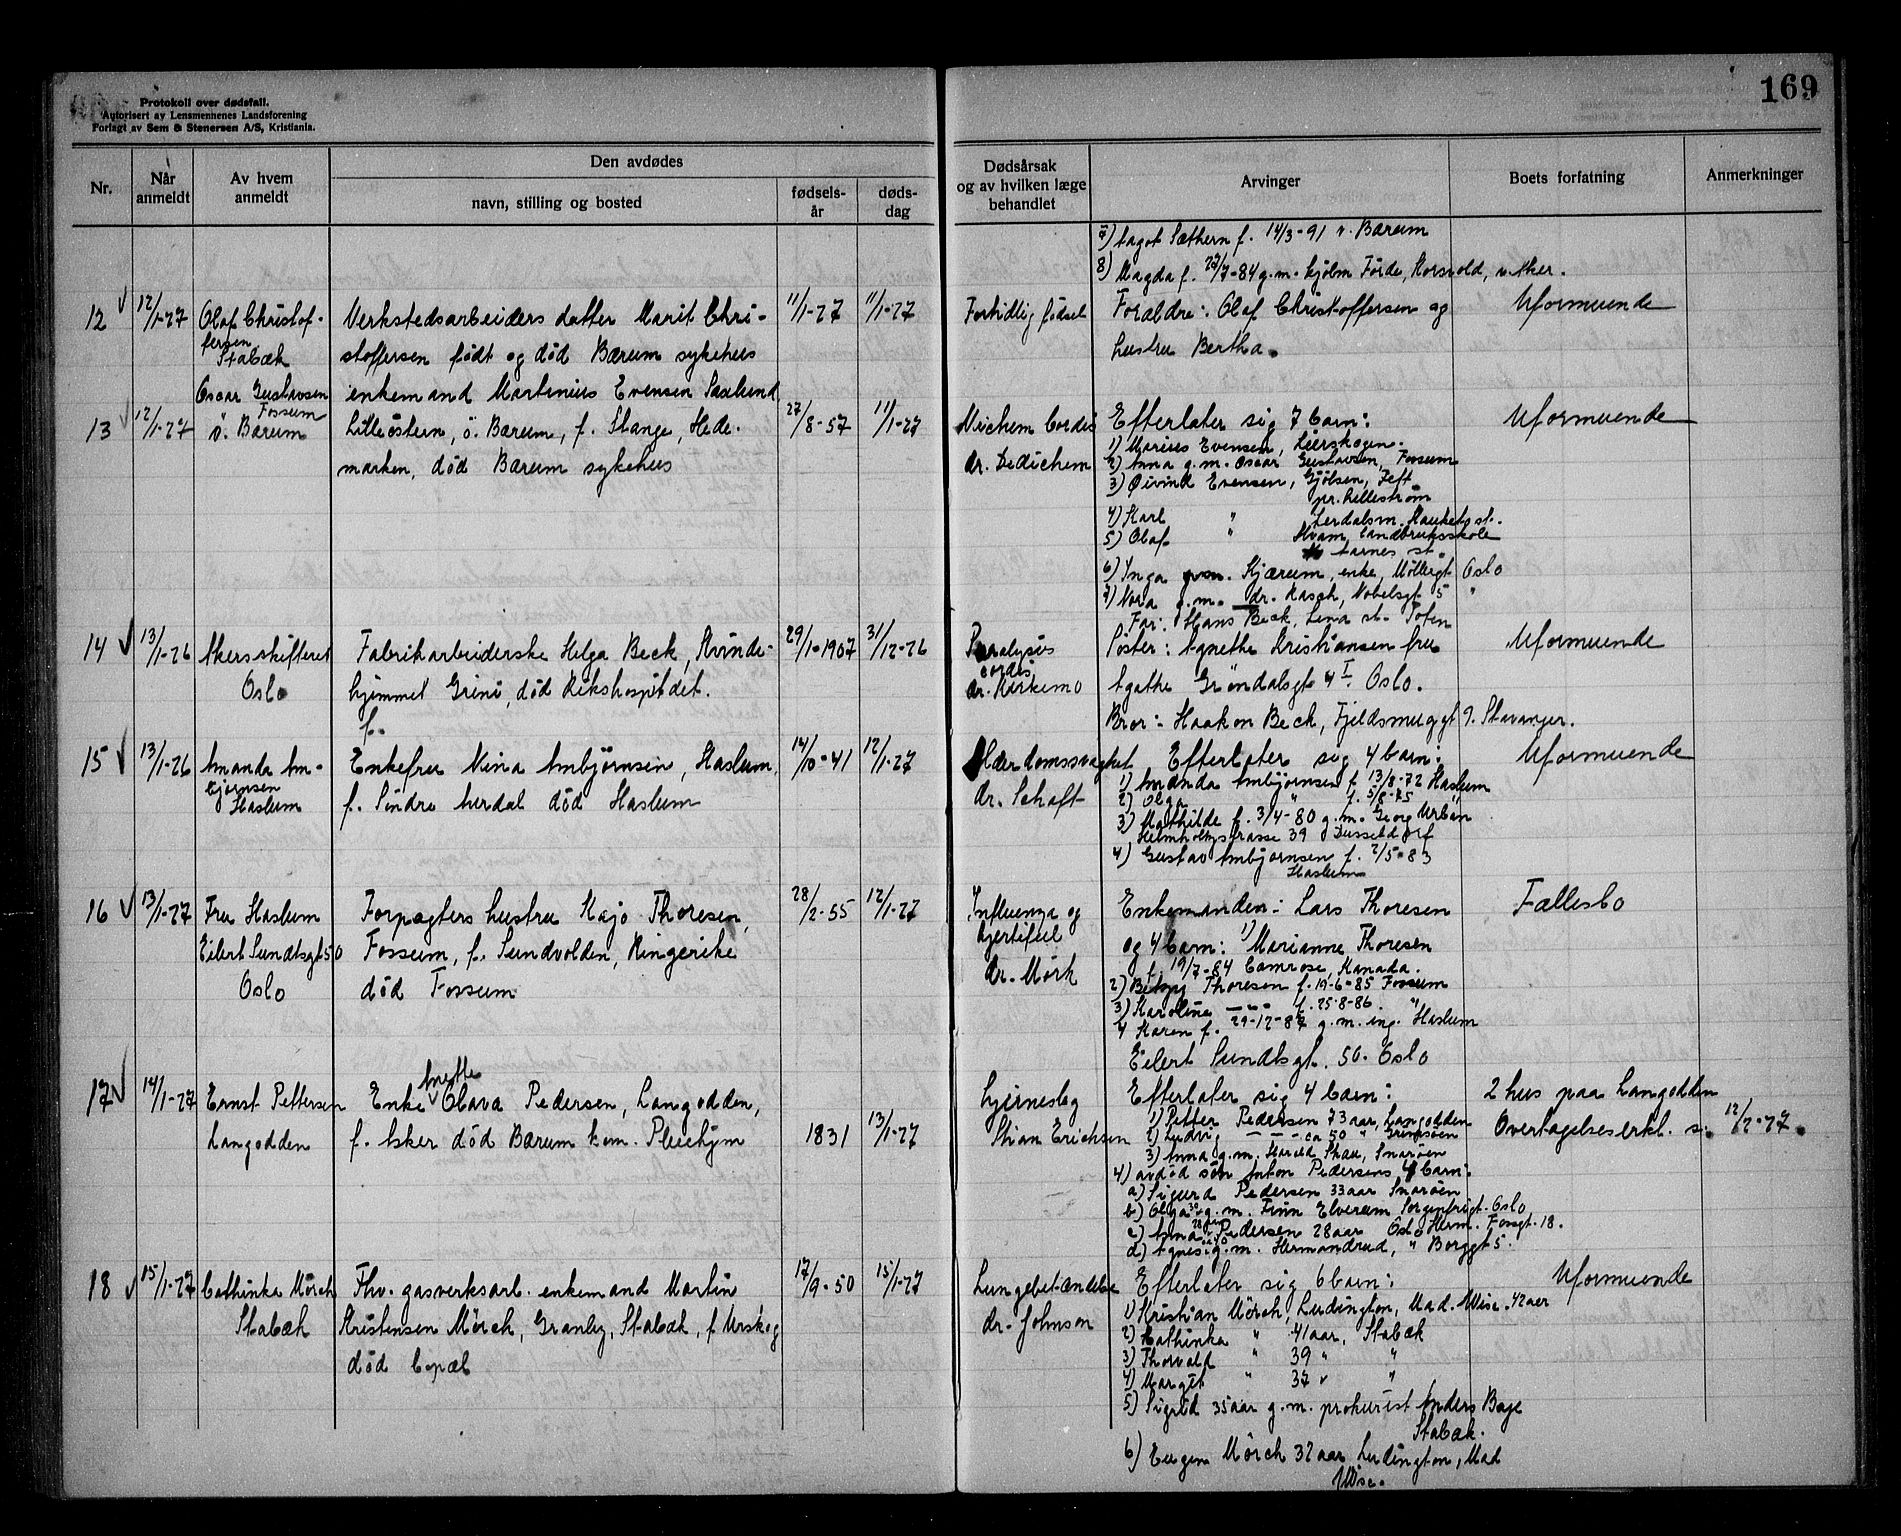 169
Protokoll over dødsfall.
Autorisert av Lensmennenes Landsforening
Forlagt av Sem & Stenersen A/S, Kristiania.
Nr.
Når anmeldt
Av hvem anmeldt
Den avdødes
navn, stilling og bosted
fødsels-år
døds-dag
Dødsårsak og av hvilken læge behandlet
Arvinger
Boets forfatning
Anmerkninger
7) Aagot Sæthern f. 14/3-91 v. Bærum
8) Magda f. 27/7-84 g.m. Hjølm Förde, Korsvold, v. Aker.
12 12/1-27 Olaf Christof-
fersen
Stabæk
Verkstedsarbeiders datter Marit Chri-
stoffersen født og död Bærum sykehus
11/1-27 11/1-27
Fortidlig födsel
Forældre: Olaf Christoffersen og
hustru Bertha.
Uformuende
13 12/1-27 Oscar Gustavsen
Fossum
ö. Bærum
enkemand Martinius Evensen Saxlund
Lilleöstern, ö. Bærum, f. Stange, Hede-
marken, död Bærum sykehus
27/8-57 11/1-27
Cordis
dr. Dedichem
Efterlater sig 7 barn:
1) Marius Evensen, Lierskogen.
2) Anna g.m. Oscar Gustavsen, Fossum
3) Öivind Evensen, Gjölsen, Jeft
pr. Lilleström
4) Karl "
5) Olaf " Hvam Landbruksskole
Aarnes st.
6) Inga Kjærum, enke, Möllergt Oslo
7) Nora g.m. dr. Rasch, Nobelsgt 5 "
Uformuende
14 13/1-26 Akersskifteret
Oslo
Fabrikarbeiderske Helga Beck, Kvinde-
hjemmet Grini, död Rikshospitalet.
f.
29/1-1907 31/12-26
Paralysis
cordis
dr. Kirkemo
Far: Hans Beck, Lena st. Toten
Söster: Agnethe Kristiansen fru
Agathe Gröndalsgt 4 I. Oslo.
Bror: Haakon Beck, Fjeldsmuggt 9. Stavanger.
Uformuende
15 13/1-26 Amanda Am-
björnsen
Haslum
Enkefru Nina Ambjörnsen, Haslum,
f. Söndre Aurdal död Haslum
14/10-41 12/1-27
Alderdomssvaghet
dr. Schaft
Efterlater sig 4 barn:
1) Amanda Ambjörnsen f. 13/8-72 Haslum
2) Olga " f. 5/8-75 "
3) Mathilde f. 3/4-80 g.m. Georg Urban
Helmholtzstrasse 39 Dusseldorf
4) Gustav Ambjörnsen f. 2/5-83
Haslum
Uformuende
16 13/1-27 Fru Haslum
Eilert Sundtsgt 50
Oslo
Forpagters hustru Kajo Thoresen,
Fossum, f. Sundvolden, Ringerike
död Fossum
28/2-55 12/1-27
Influenza og
hjertefeil
dr. Mörk
Enkemanden: Lars Thoresen
og 4 barn: 1) Marianne Thoresen
f. 19/7-84 Camrose, Kanada.
2) Betzy Thoresen f. 19-6-85 Fossum
3) Karoline — " — f. 25-8-86. "
4 Karen f. 29-12-87 g.m. ing. Haslum
Eilert Sundtsgt. 50. Oslo
Fællesbo
17 14/1-27 Ernst Pettersen
Langodden
Anette
Enke Olava Pedersen, Langodden,
f. Asker död Bærum kom. Pleiehjm
1831 13/1-27
hjerneslag
Stian Erichsen
Efterlater sig 4 barn:
1) Petter Pedersen 73 aar, Langodden
2) Ludvig — " — ca 50 "
3) Anna g.m. Harald Skau, Snaröen
4) avdöd sön Anton Pedersens 4 barn:
a) Sigurd Pedersen 33 aar Snaröen
b) Olga g.m. Finn Elverum Sorgenfrigt. Oslo
c) Anna Pedersen 28 aar Oslo Herm. Fossgt. 18.
d) Agnes g.m. Hermandrud, " Borggt 5.
2 hus paa Langodden
Overtagelseserkl. s. 12/2-27.
18 15/1-27 Cathinka Mörch
Stabæk
Fhv. gasverksarb. enkemand Martin
Kristensen Mörch, Granly, Stabæk, f. Urskog
död
17/9-50 15/1-27
Lungebetændelse
dr. Johnson
Efterlater sig 6 barn:
1) Kristian Mörch, Ludington, Mad. Wisc. 42 aar
2) Cathinka " 41 aar, Stabæk
3) Thorvald " 39 " "
4) Margit " 37 " "
5) Sigrid 35 aar g.m. prokurist Anders Bage
Stabæk.
6) Eugen Mörch 32 aar Ludington, Mad
Wisc.
Uformuende